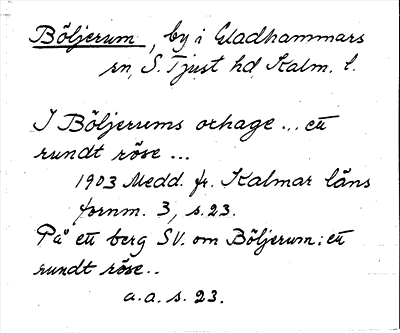 Böljerum, by i Gladhammars
sn, S. Tjust hd Kalm. l.
I Böljerums oxhage ... ett
rundt röse ...
1903 Medd. fr. Kalmar läns
fornm. 3, s. 23.
På ett berg SV. om Böljerum: ett
rundt röse..
a.a. s. 23.